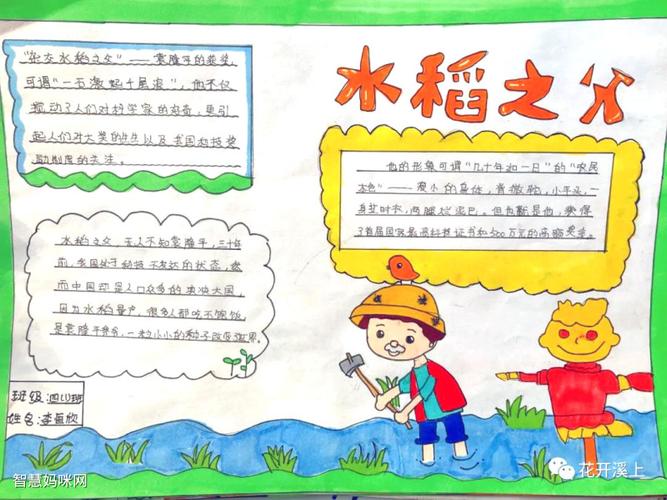 水稻之父
"杂交水稻之父"——袁隆平的获奖,
可谓"一石激起千层浪",他不仅
搅动了人们对科学家的好奇,更引
起人们对大奖的产生以及我国科技奖
励制度的关注。
他的形象可谓"几十年如一日"的"农民
本色"——瘦小的身体,背微驼,小平头,一
身旧衣,两腿泥巴。但也就是他,获得
了首届国家最高科技证书和500万元的高额奖金。
水稻之父,无人不知袁隆平,三十年
前,我国处于科技不发达的状态,然
而中国却是人口众多的大国,
因为水稻量产,很多人都吃不饱饭,
是袁隆平爷爷,一粒小小的种子改变世界。
班级:四(1)班
姓名:李恒欣
智慧妈咪网
花开溪上